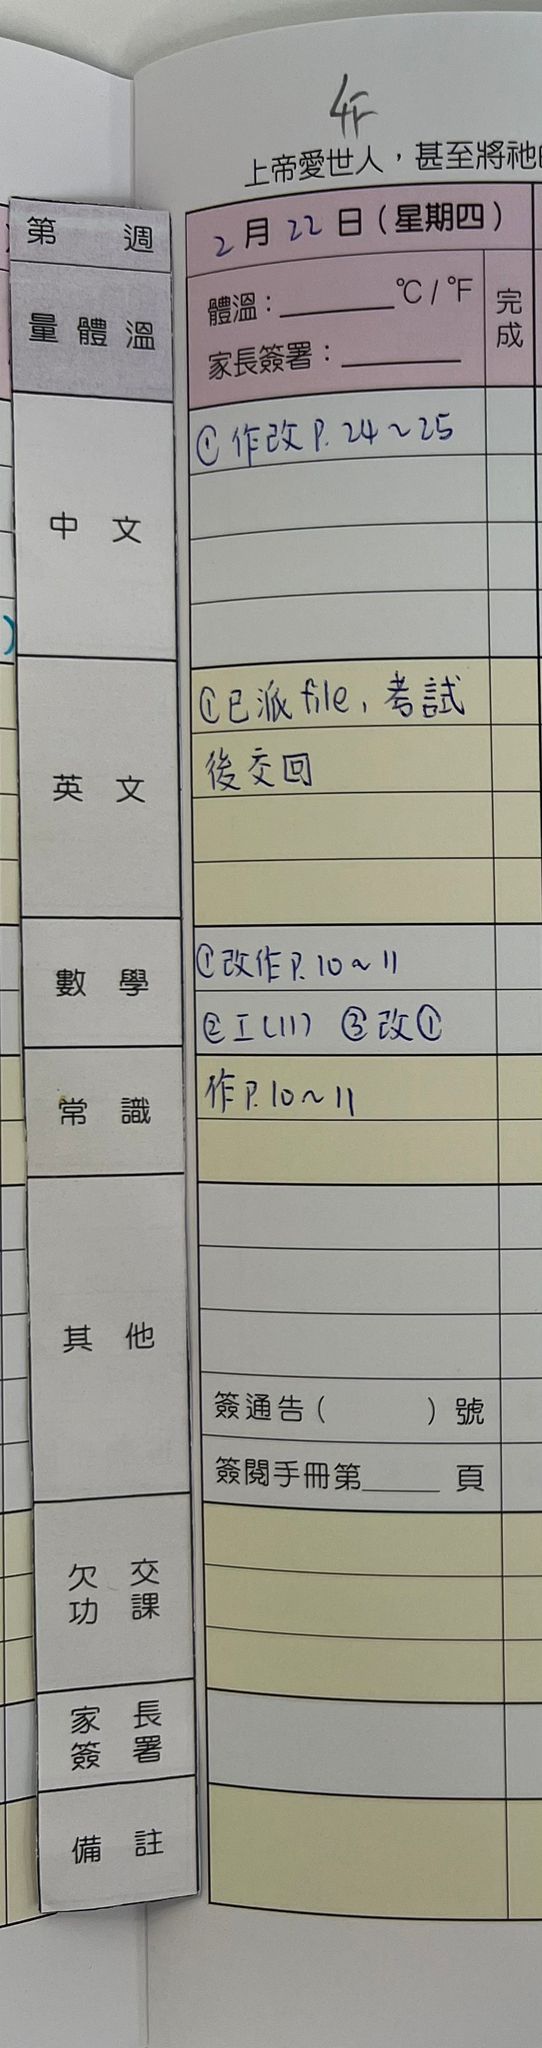 上帝愛世人，甚至將祂
第 週
2 月 22 日（星期四）
量 體 溫
體溫：______℃ / ℉
家長簽署：______
完成
中 文
① 作改 P. 24～25
英 文
①已派 file，考試
後交回
數 學
①改作 P. 10～11
② I (11) ③ 改①
常 識
作P. 10～11
其 他
簽通告（ ）號
簽閱手冊第____ 頁
欠 交
功 課
家 長
簽 署
備 註